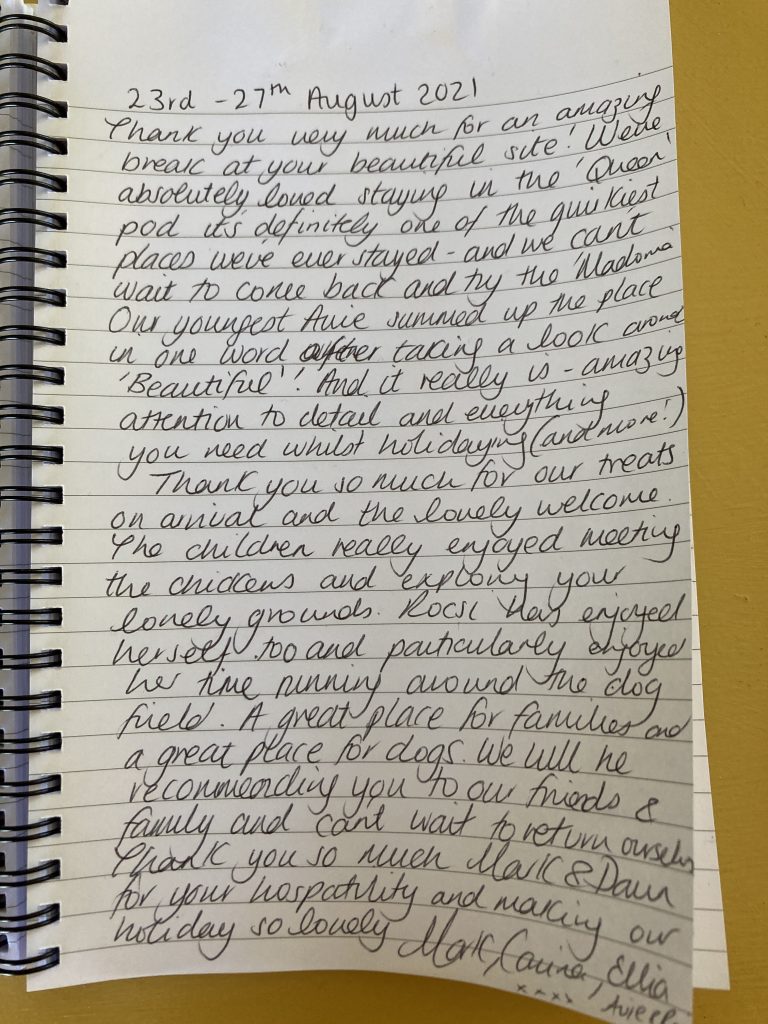 23rd - 27th August 2021
Thank you very much for an amazing
break at your beautiful site! We've
absolutely loved staying in the 'Queen'
pod it's definitely one of the quirkiest
places we've ever stayed - and we can't
wait to come back and try the 'Madonna'
Our youngest Avie summed up the place
in one word after taking a look around
'Beautiful'! And it really is - amazing
attention to detail and everything
you need whilst holidaying (and more!)
Thank you so much for our treats
on arrival and the lovely welcome.
The children really enjoyed meeting
the chickens and exploring your
lovely grounds. Rocsi has enjoyed
herself too and particularly enjoyed
her time running around the dog
field. A great place for families and
a great place for dogs. We will be
recommending you to our friends &
family and can't wait to return ourselves
Thank you so much Mark & Dawn
for your hospitality and making our
holiday so lovely Mark, Carina, Ellia
x x x x Avie